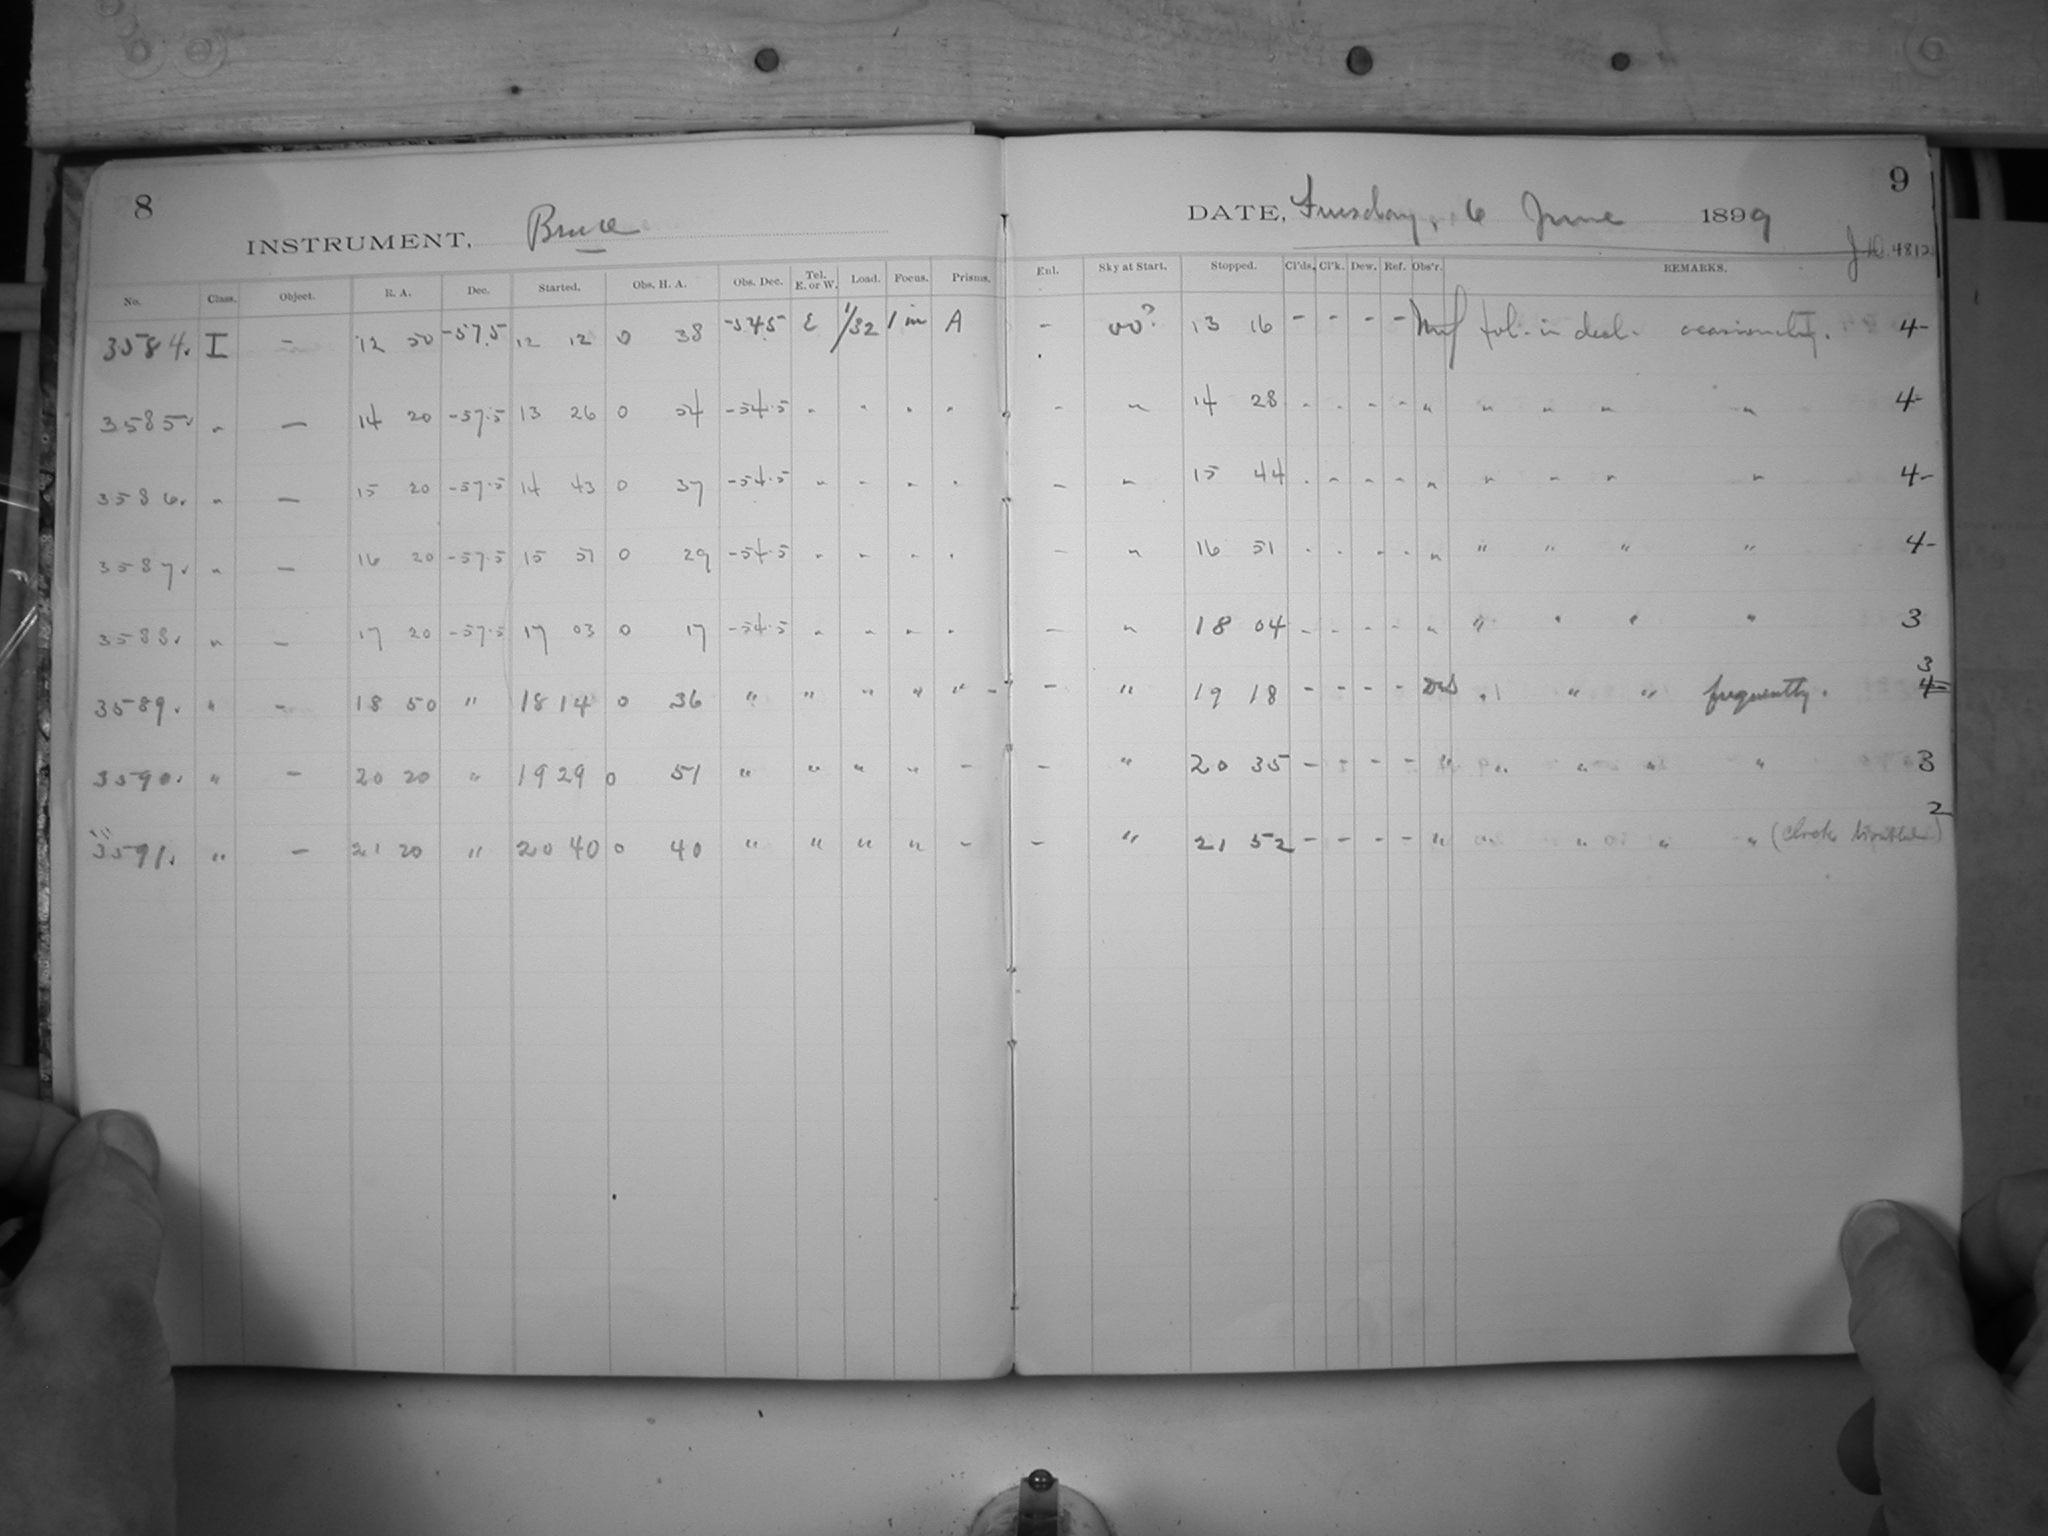 8
INSTRUMENT, Bruce
No. Class. Object. R. A. Dec. Started. Obs. H. A. Obs. Dec. Tel. E. or W. Load. Focus. Prisms.
3584. I - 12 50 -57.5 12 12 0 38 -54.5 E 1/32 1 in A
3585. " — 14 20 -57.5 13 26 0 54 -54.5 " " " "
3586. " — 15 20 -57.5 14 43 0 37 -54.5 " " " "
3587. " — 16 20 -57.5 15 51 0 29 -54.5 " " " "
3588. " — 17 20 -57.5 17 03 0 17 -54.5 " " " "
3589. " - 18 50 " 18 14 0 36 " " " " " -
3590. " - 20 20 " 19 29 0 51 " " " " -
3591. " - 21 20 " 20 40 0 40 " " " " -
9
DATE, Tuesday, 6 June 1899
J.D. 4812
Enl. Sky at Start. Stopped. Cl'ds. Cl'k. Dew. Ref. Obs'r. REMARKS.
- 13 16 - - - - fol. in decl. occasionally. 4-
- " 14 28 - - - - " " " " " 4-
- " 15 44 - - - - " " " " " 4-
- " 16 51 - - - - " " " " " 4-
- " 18 04 - - - - " " " " " 3
- " 19 18 - - - - " " " frequently. 4 3
- " 20 35 - - - - " " " " " 3
- " 21 52 - - - - " " " " " (Clock troubled) 2